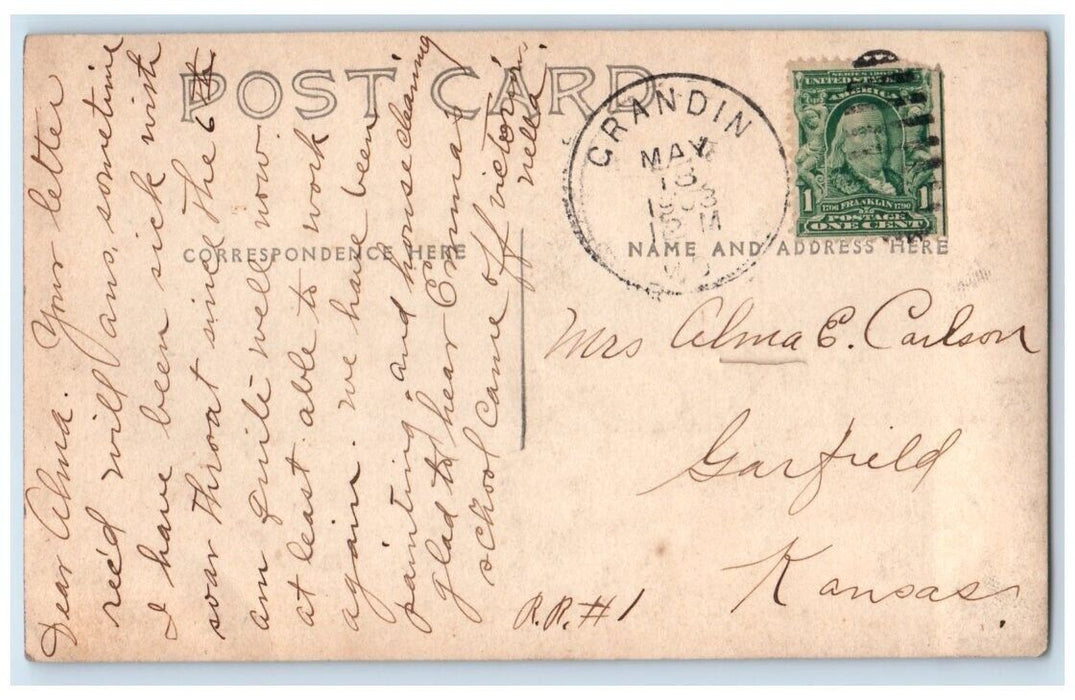 POST CARD
CORRESPONDENCE HERE
NAME AND ADDRESS HERE
GRANDIN
MAY
18
1908
M
SERIES 1902
UNITED STATES
AMERICA
1
1706 FRANKLIN 1790
POSTAGE
ONE CENT
Dear Alma. Your letter
rec'd will ans, sometime
I have been sick with
soar throat since the 6th
am quite well now.
at least able to work
again. we have been
painting, and housecleaning
glad to hear Co. Emmas
school came off victorious.
nella.
Mrs Alma E. Carlson
Garfield
Kansas.
R.R. #1